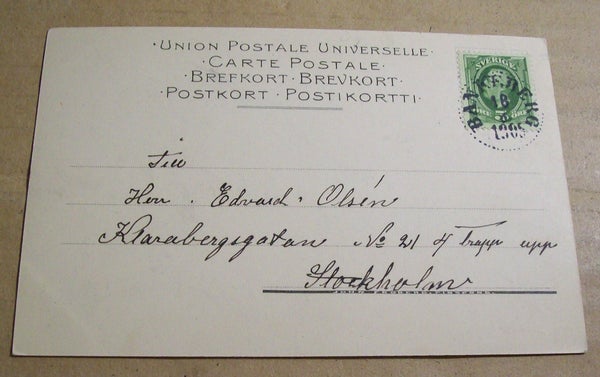 ·UNION POSTALE UNIVERSELLE·
·CARTE POSTALE·
·BREFKORT·BREVKORT·
·POSTKORT·POSTIKORTTI·
SVERIGE
18
190
Till
Herr. Edvard. Olsén
Klarabergsgatan No 21 4 Trapp upp
Stockholm